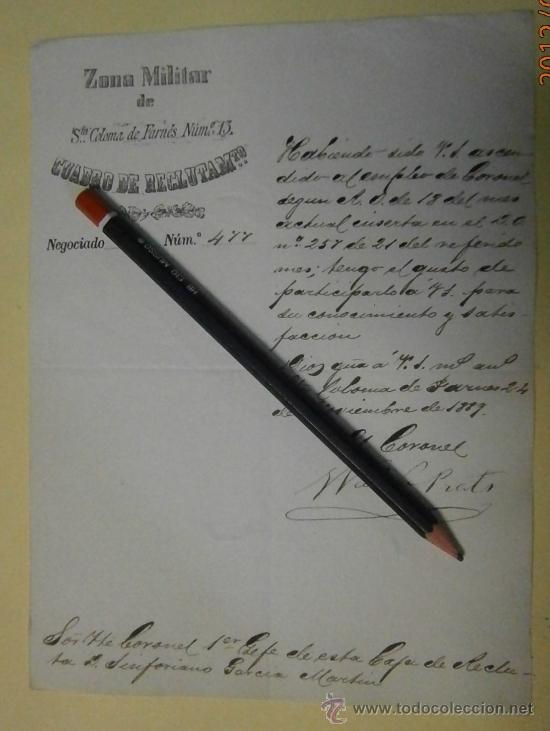 Zona Militar
de
Sta. Coloma de Farnés Núm.º 13.
CUADRO DE RECLUTAMTO.
Negociado Núm.º 477
Habiendo sido V.S. ascen
dido al empleo de Coronel
segun R. O. de 18 del mes
actual inserta en el D.O.
nº 257 de 21 del referido
mes; tengo el gusto de
participarlo á V.S. para
su conocimiento y satis-
faccion
Dios gue á V.S. ms. as.
Coloma de Farnes 24
de Noviembre de 1889.
El Coronel
Prats
Sor. Tte Coronel 1er Gefe de esta Caja de Reclu-
ta D. Sinforiano Garcia Martin
todocoleccion
http://www.todocoleccion.net